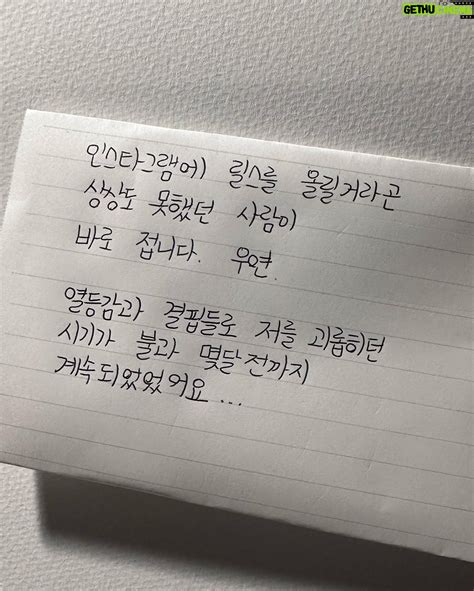 GETHU
인스타그램에 릴스를 올릴거라곤
상상도 못했던 사람이
바로 접니다. 우연.
열등감과 결핍들로 저를 괴롭히던
시기가 불과 몇달 전까지
계속되었었어요...